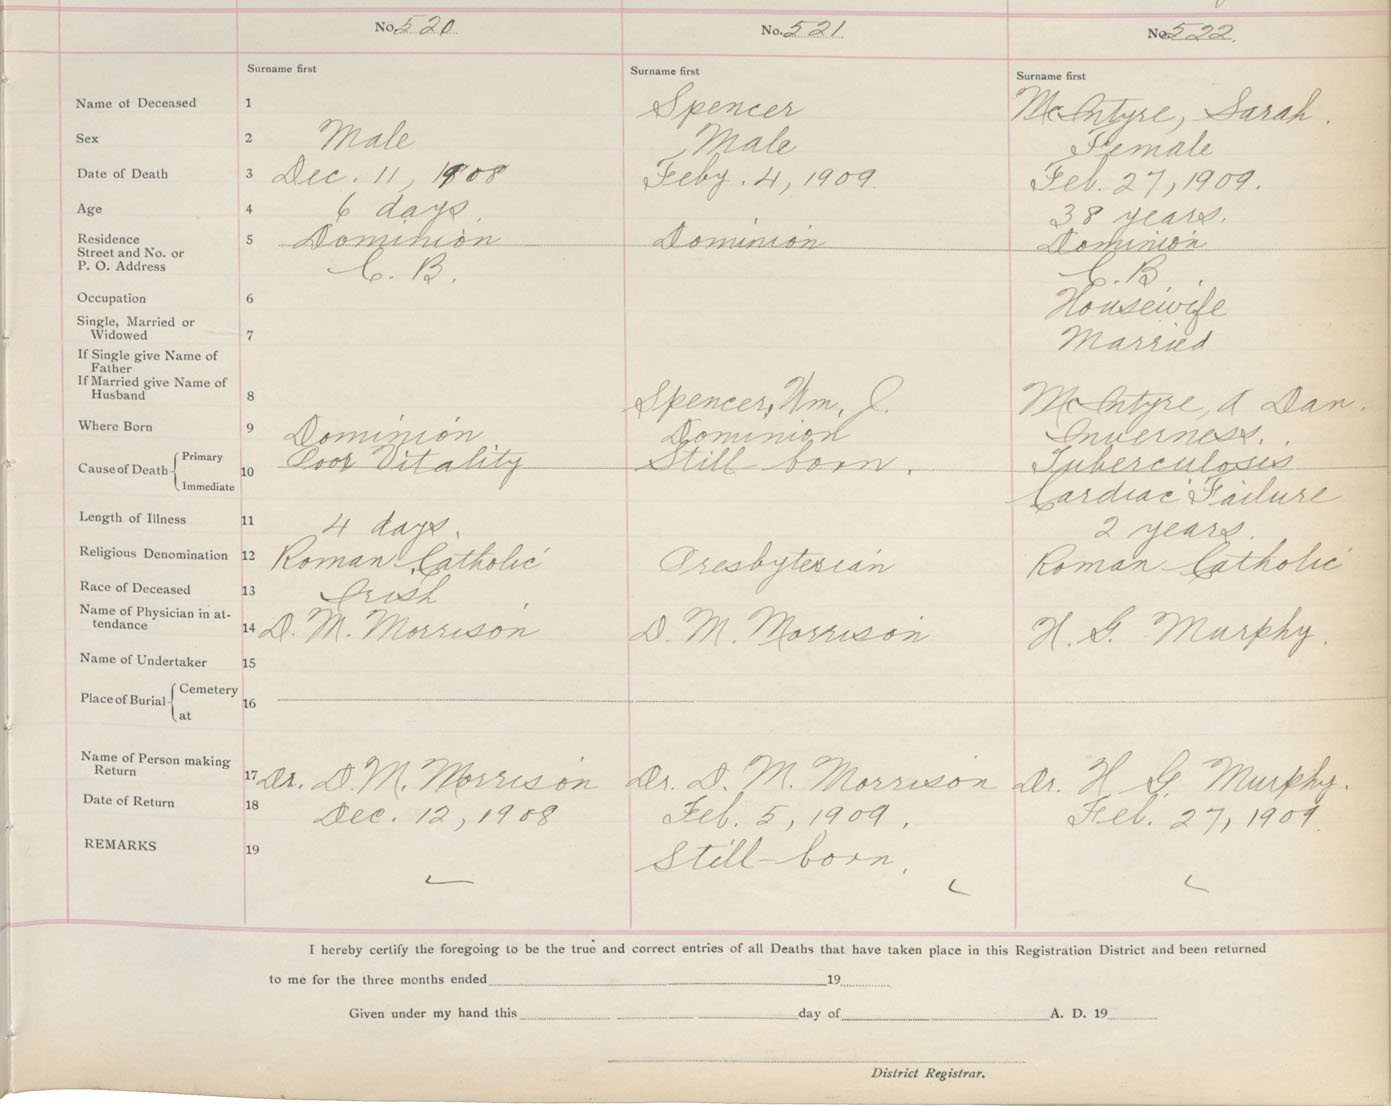 No. 520 No. 521 No. 522.
Surname first Surname first Surname first
Name of Deceased 1 Spencer McIntyre, Sarah.
Sex 2 Male Male Female
Date of Death 3 Dec. 11, 1908 Feby. 4, 1909. Feb. 27, 1909.
Age 4 6 days. 38 years.
Residence 5 Dominion Dominion Dominion
Street and No. or
P. O. Address C. B. C. B.
Occupation 6 Housewife
Single, Married or
Widowed 7 Married
If Single give Name of
Father
If Married give Name of
Husband 8 Spencer, Wm. J. McIntyre, A Dan.
Where Born 9 Dominion Dominion Inverness.
Cause of Death Primary 10 Poor Vitality Still-born. Tuberculosis
Immediate Cardiac Failure
Length of Illness 11 4 days. 2 years.
Religious Denomination 12 Roman Catholic Presbyterian Roman Catholic
Race of Deceased 13 Irish
Name of Physician in at-
tendance 14 D. M. Morrison D. M. Morrison H. G. Murphy.
Name of Undertaker 15
Place of Burial Cemetery 16
at
Name of Person making
Return 17 Dr. D. M. Morrison Dr. D. M. Morrison Dr. H G. Murphy.
Date of Return 18 Dec. 12, 1908 Feb. 5, 1909. Feb. 27, 1909
REMARKS 19 Still-born.
I hereby certify the foregoing to be the true and correct entries of all Deaths that have taken place in this Registration District and been returned
to me for the three months ended 19
Given under my hand this day of A. D. 19
District Registrar.